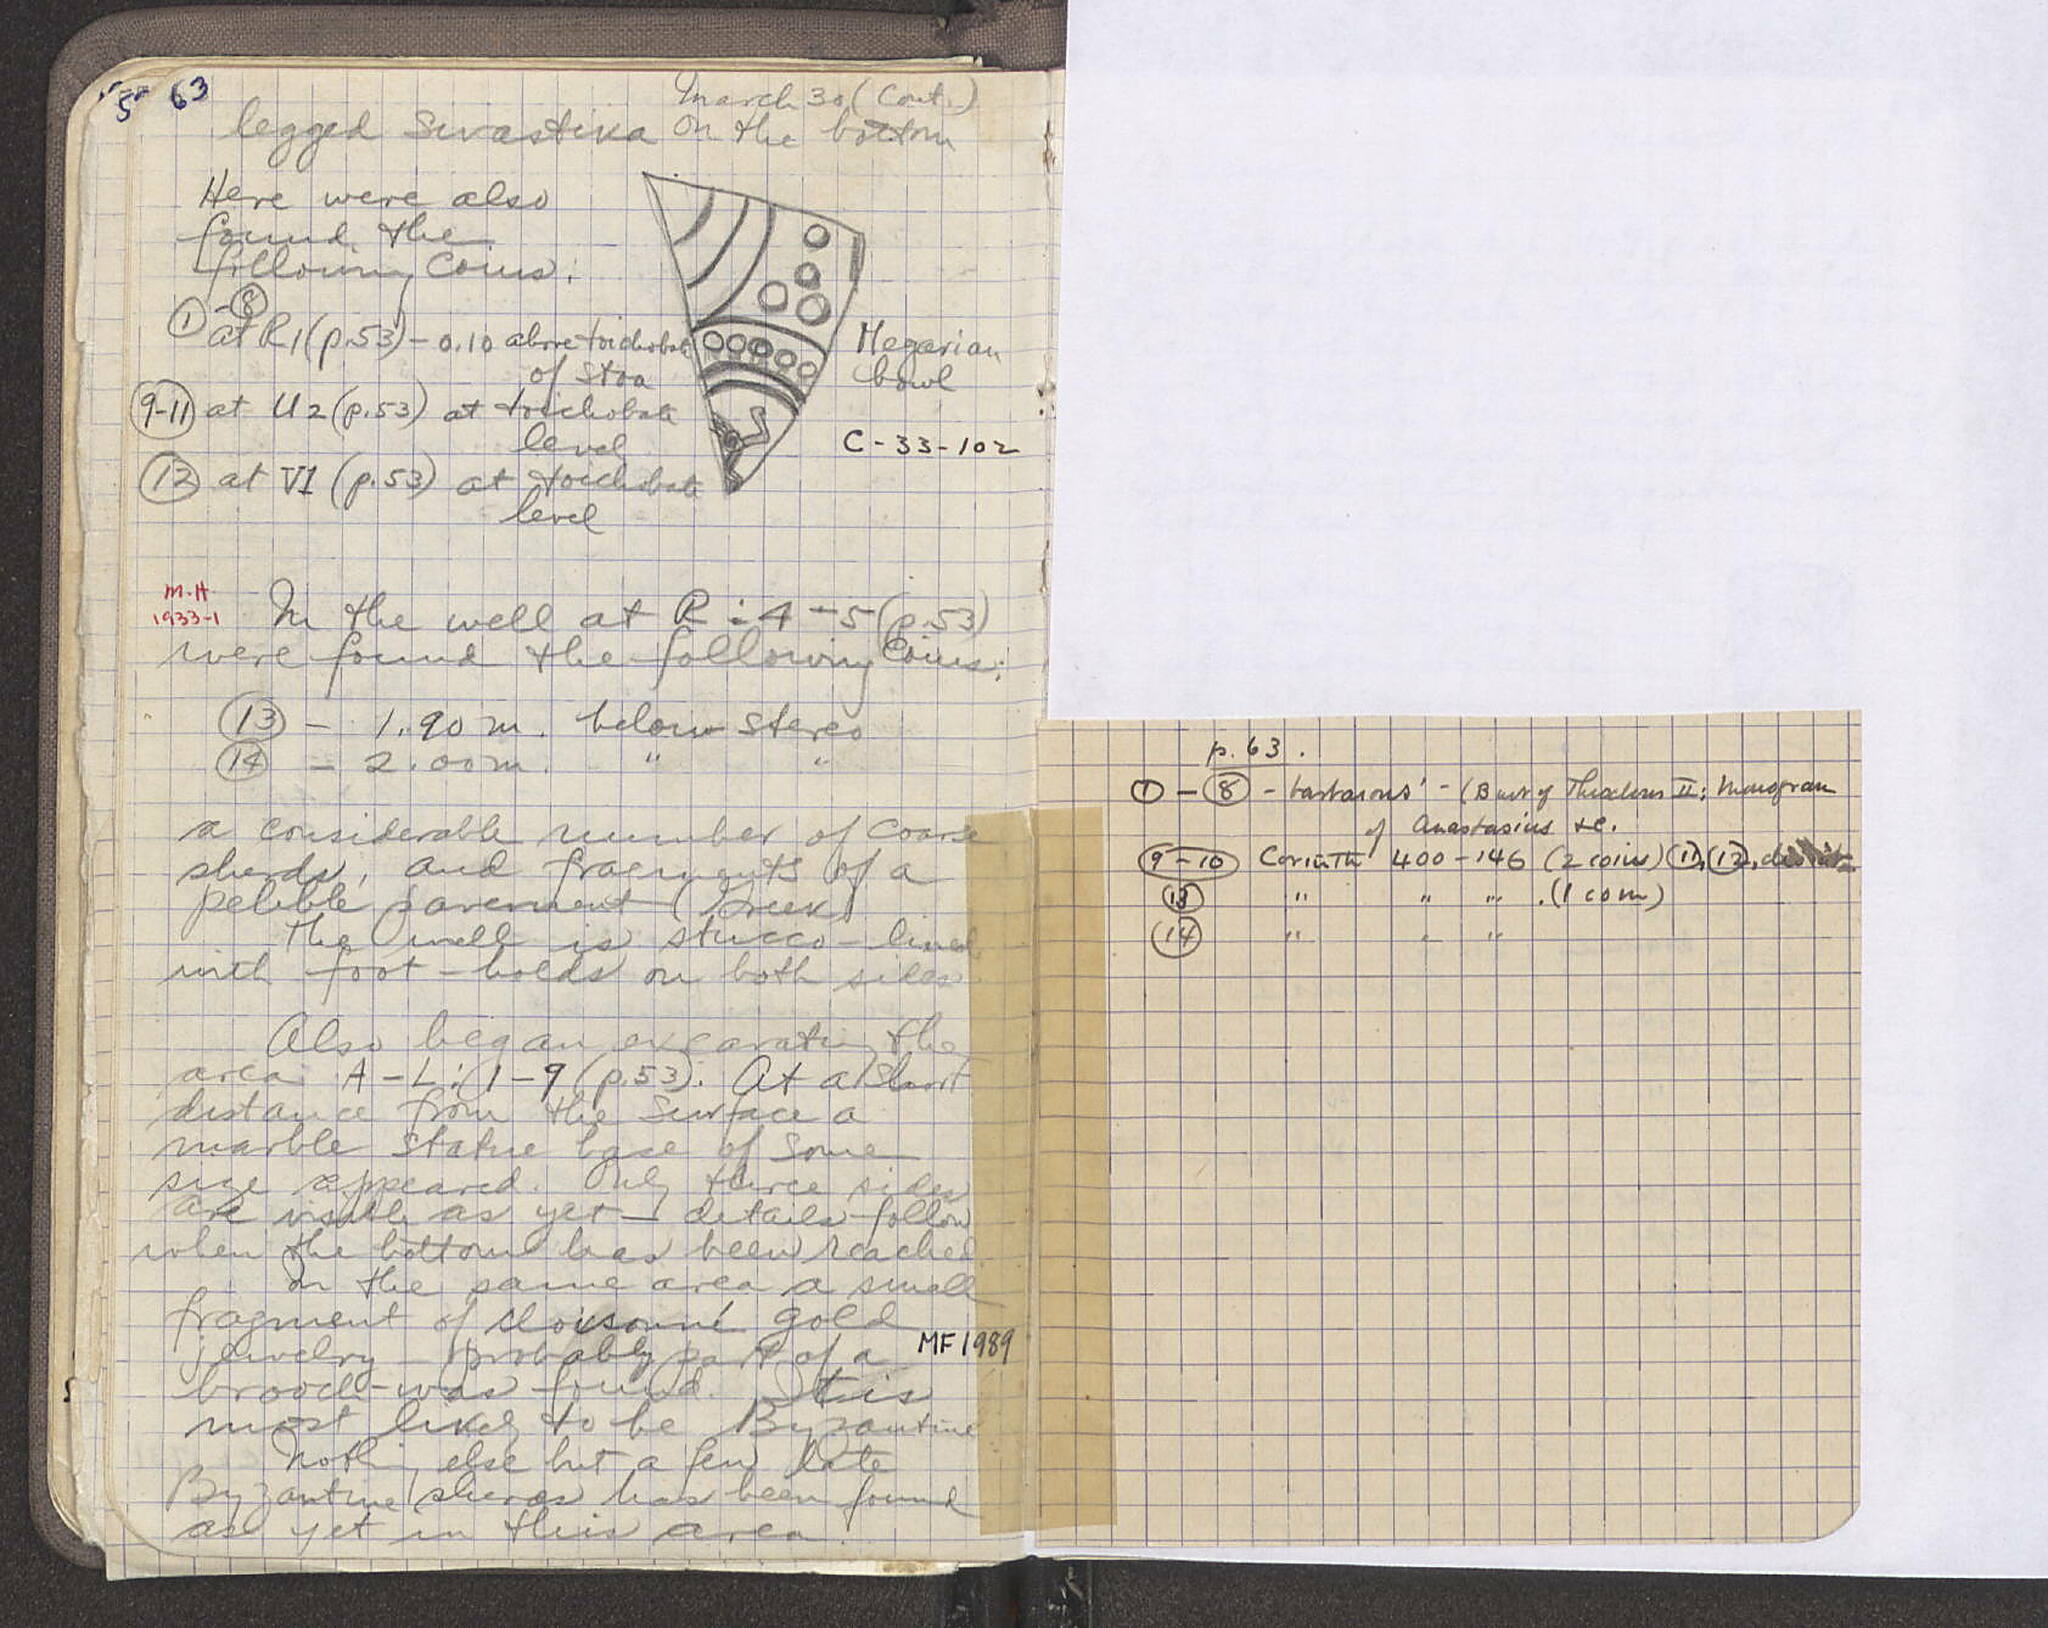 63
March 30 (Cont.)
legged Swastika on the bottom
Here were also
found the
following Coins:
① - ⑧
at R1 (p.53) - 0.10 above toichobate
of Stoa
Megarian
bowl
9-11 at U2 (p.53) at toichobate
level
C-33-102
12 at V1 (p.53) at toichobate
level
M.H
1933-1
In the well at R:4-5 (p.53)
were found the following Coins:
13 - 1.90 m. below stereo
14 - 2.00 m. " "
a considerable number of coarse
sherds, and fragments of a
pebble pavement (Greek)
The well is stucco-lined
with foot-holds on both sides
Also began excavating the
area A-L:1-9 (p.53). At a short
distance from the surface a
marble statue base of some
size appeared. Only three sides
are visible as yet - details follow
when the bottom has been reached
In the same area a small
fragment of cloisonné gold
jewelry - probably part of a
MF 1989
brooch - was found. It is
most likely to be Byzantine
Nothing else but a few late
Byzantine sherds has been found
as yet in this area.
p. 63.
① - ⑧ - barbarous - (Bust of II; Monogram
of Anastasius &c.
9-10 Corinth 400-146 (2 coins) 11, 12,
13 " " " . (1 coin)
14 " " "